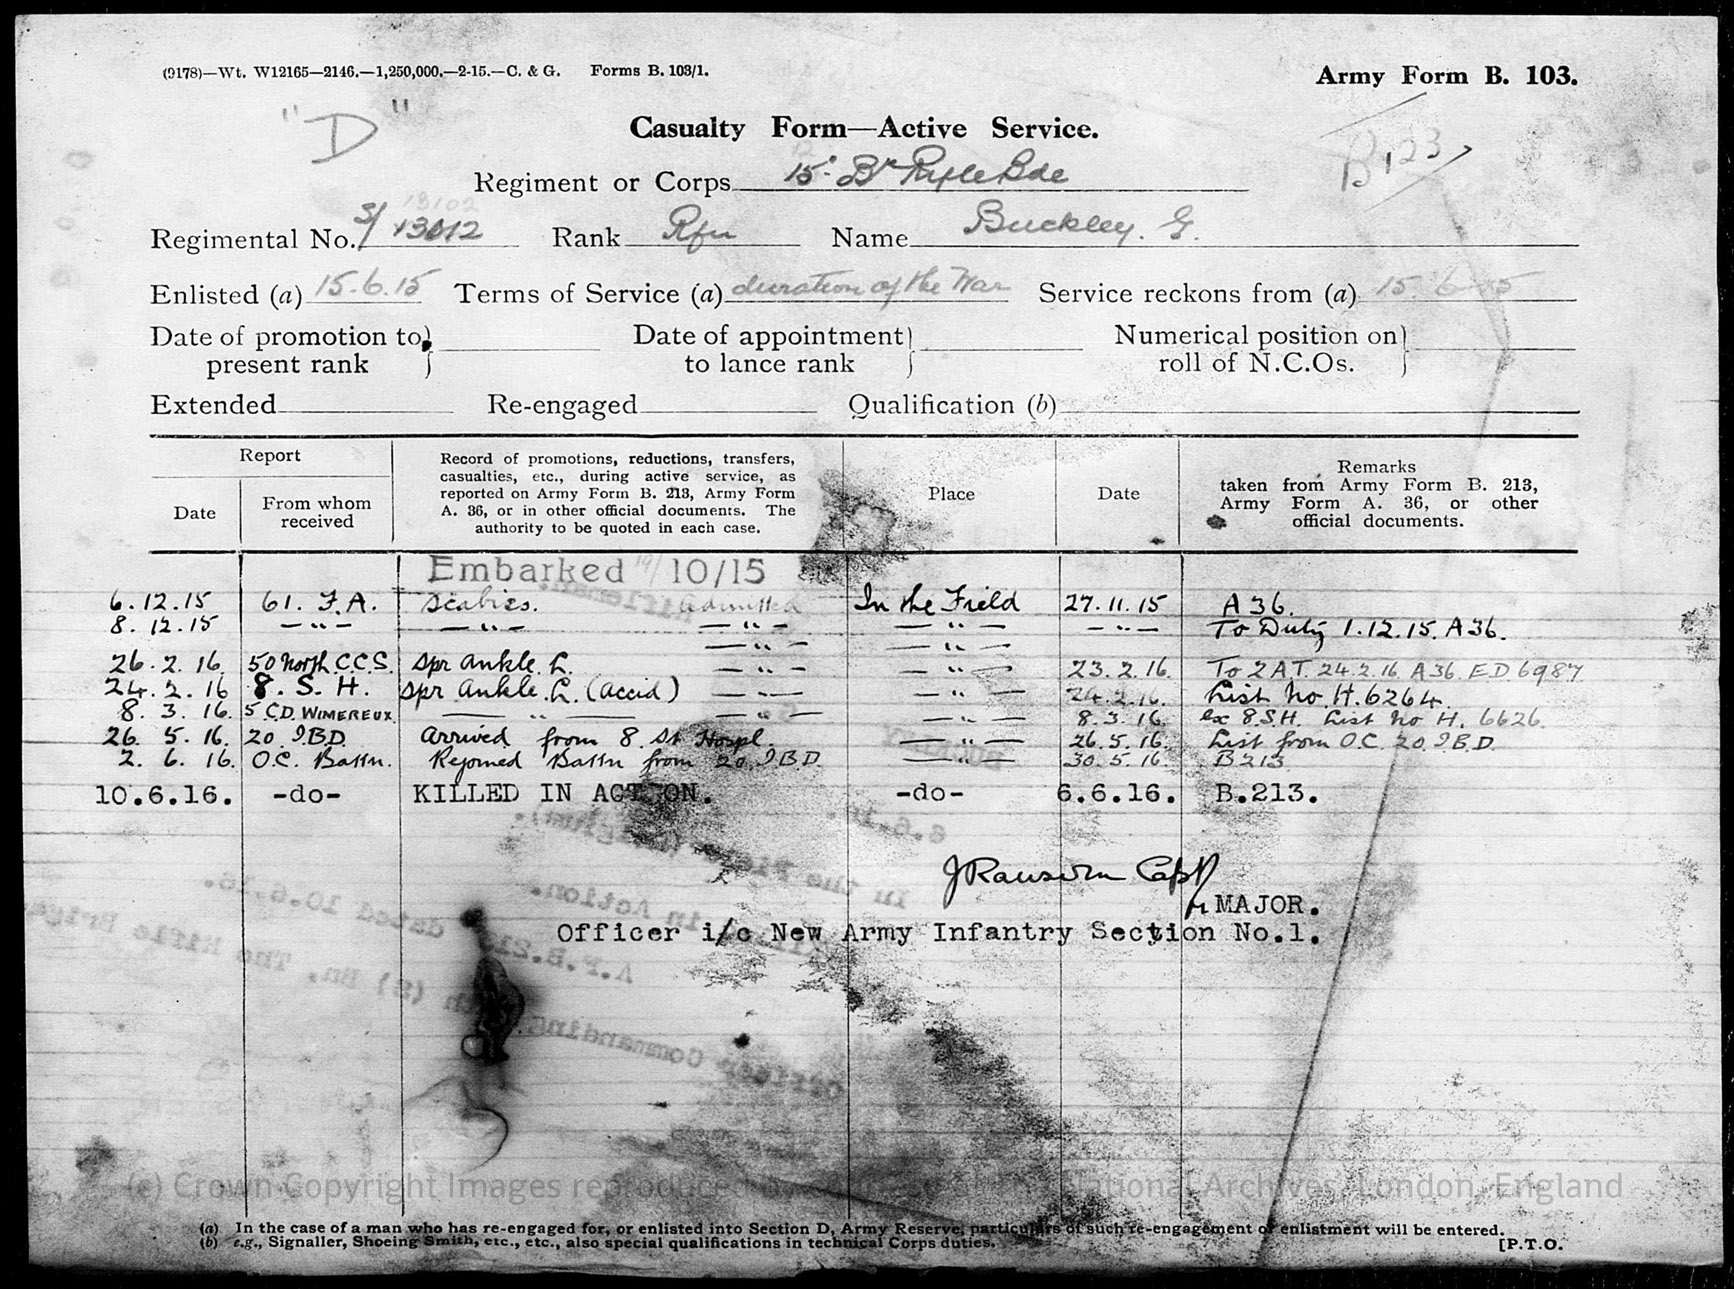 (9178)—Wt. W12165—2146.—1,250,000.—2-15.—C. & G. Forms B. 103/1.
Army Form B. 103.
"D"
B123
Casualty Form—Active Service.
Regiment or Corps 15 Bn Rifle Bde
13102
Regimental No. S/13012 Rank Rfn Name Buckley. G.
Enlisted (a) 15.6.15 Terms of Service (a) duration of the War Service reckons from (a) 15.6.15
Date of promotion to present rank } Date of appointment to lance rank } Numerical position on roll of N.C.Os. }
Extended Re-engaged Qualification (b)
Report
Date
From whom received
Record of promotions, reductions, transfers,
casualties, etc., during active service, as
reported on Army Form B. 213, Army Form
A. 36, or in other official documents. The
authority to be quoted in each case.
Place
Date
Remarks
taken from Army Form B. 213,
Army Form A. 36, or other
official documents.
Embarked 19/10/15
6.12.15 61. F.A. Scabies. admitted In the Field 27.11.15 A36.
8.12.15 —"— —"— —"— —"— —"— To Duty 1.12.15. A36.
—"— —"—
26.2.16. 50 North C.C.S. Spr Ankle. L. —"— —"— 23.2.16. To 2 A.T. 24.2.16 A36. ED6987
24.2.16 8. S. H. Spr Ankle. L. (accid) —"— —"— 24.2.16. List No H.6264.
8.3.16. 5 C.D. WIMEREUX. —"— —"— —"— 8.3.16. ex 8.S.H. List No H. 6626.
26.5.16. 20 I.B.D. Arrived from 8 St Hospl. —"— 26.5.16. List from O.C. 20 I.B.D.
2.6.16. O.C. Battn. Rejoined Battn from 20 I.B.D. —"— 30.5.16. B213
10.6.16. -do- KILLED IN ACTION. -do- 6.6.16. B.213.
Capt
MAJOR.
Officer i/c New Army Infantry Section No.1.
(c) Crown Copyright Images reproduced by courtesy of The National Archives, London, England
(a) In the case of a man who has re-engaged for, or enlisted into Section D, Army Reserve, particulars of such re-engagement or enlistment will be entered.
(b) e.g., Signaller, Shoeing Smith, etc., etc., also special qualifications in technical Corps duties.
[P.T.O.